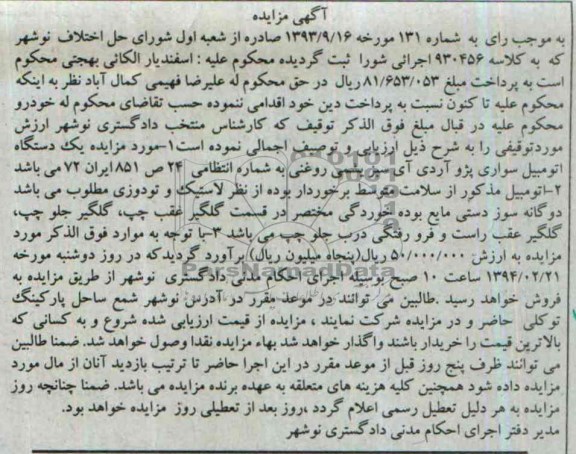 آگهی مزایده
به موجب رای به شماره ۱۳۱ مورخه ۱۳۹۳/۹/۱۶ صادره از شعبه اول شورای حل اختلاف نوشهر
که به کلاسه ۹۳۰۴۵۶ اجرائی شورا ثبت گردیده محکوم علیه : اسفندیار الکائی بهجتی محکوم
است به پرداخت مبلغ ۸۱/۶۵۳/۰۵۳ ریال در حق محکوم له علیرضا فهیمی کمال آباد نظر به اینکه
محکوم علیه تا کنون نسبت به پرداخت دین خود اقدامی ننموده حسب تقاضای محکوم له خودرو
محکوم علیه در قبال مبلغ فوق الذکر توقیف که کارشناس منتخب دادگستری نوشهر ارزش
موردتوقیفی را به شرح ذیل ارزیابی و توصیف اجمالی نموده است۱-مورد مزایده یک دستگاه
اتومبیل سواری پژو آردی آی روغنی به شماره انتظامی ۲۴ ص ۸۵۱ ایران ۷۲ می باشد
۲-اتومبیل مذکور از سلامت متوسط برخوردار بوده از نظر لاستیک و تودوزی مطلوب می باشد
دوگانه سوز دستی مایع بوده خوردگی مختصر در قسمت گلگیر عقب چپ، گلگیر جلو چپ،
گلگیر عقب راست و فرو رفتگی درب جلو چپ می باشد ۳-با توجه به موارد فوق الذکر مورد
مزایده به ارزش ۵۰/۰۰۰/۰۰۰ ریال(پنجاه میلیون ریال) برآورد گردیدکه در روز دوشنبه مورخه
۱۳۹۴/۰۲/۲۱ ساعت ۱۰ صبح اجرای احکام مدنی دادگستری نوشهر از طریق مزایده به
فروش خواهد رسید .طالبین می توانند در موعد مقرر در آدرس نوشهر شمع ساحل پارکینگ
توکلی حاضر و در مزایده شرکت نمایند ، مزایده از قیمت ارزیابی شده شروع و به کسانی که
بالاترین قیمت را خریدار باشند واگذار خواهد شد بهاء مزایده نقدا وصول خواهد شد. ضمنا طالبین
می توانند ظرف پنج روز قبل از موعد مقرر در این اجرا حاضر تا ترتیب بازدید آنان از مال مورد
مزایده داده شود همچنین کلیه هزینه های متعلقه به عهده برنده مزایده می باشد. ضمنا چنانچه روز
مزایده به هر دلیل تعطیل رسمی اعلام گردد ،روز بعد از تعطیلی روز مزایده خواهد بود.
مدیر دفتر اجرای احکام مدنی دادگستری نوشهر
ParsNamadData